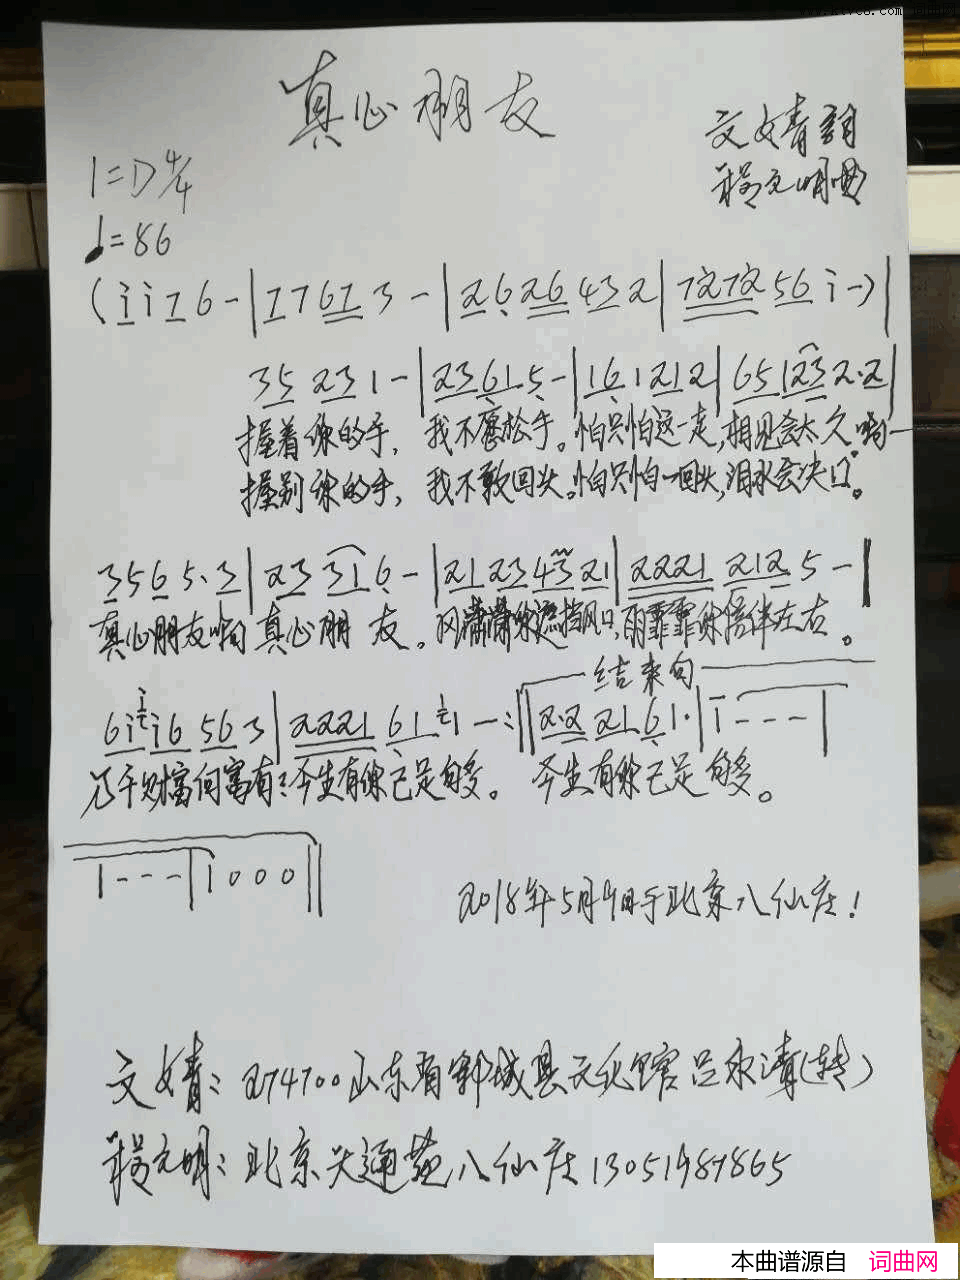 真心朋友
文婧词
程元明曲
1=D 4/4
♩=86
(i i 7 6 - | 7 7 6 7 3 - | 2 6 2 6 4 3 2 | 7 2 7 2 5 6 i -) |
3 5 2 3 1 - | 2 3 6 1 5 - | 1 6 1 2 1 2 | 6 5 1 2 3 2 · 2 |
握着你的手, 我不愿松手。怕只怕这一走,相见会太久。啊—
握别你的手, 我不敢回头。怕只怕一回头,泪水会决口。
3 5 6 5 · 3 | 2 3 3 1 6 - | 2 1 2 3 4 3 2 1 | 2 2 2 1 2 1 2 5 - |
真心朋友啊 真心朋 友。风潇潇你遮挡风口,雨霏霏你陪伴左右。
结束句
6 i i 6 5 6 3 | 2 2 2 1 6 1 1 - :|| 2 · 2 2 1 6 1 · | i - - - |
万千财富何富有:今生有你已足够。 今生有你已足够。
1 - - - | i 0 0 0 ||
2018年5月9日于北京八仙庄!
文婧: 274700山东省郓城县文化馆吕永清(转)
程元明: 北京天通苑八仙庄13051989865
本曲谱源自 词曲网